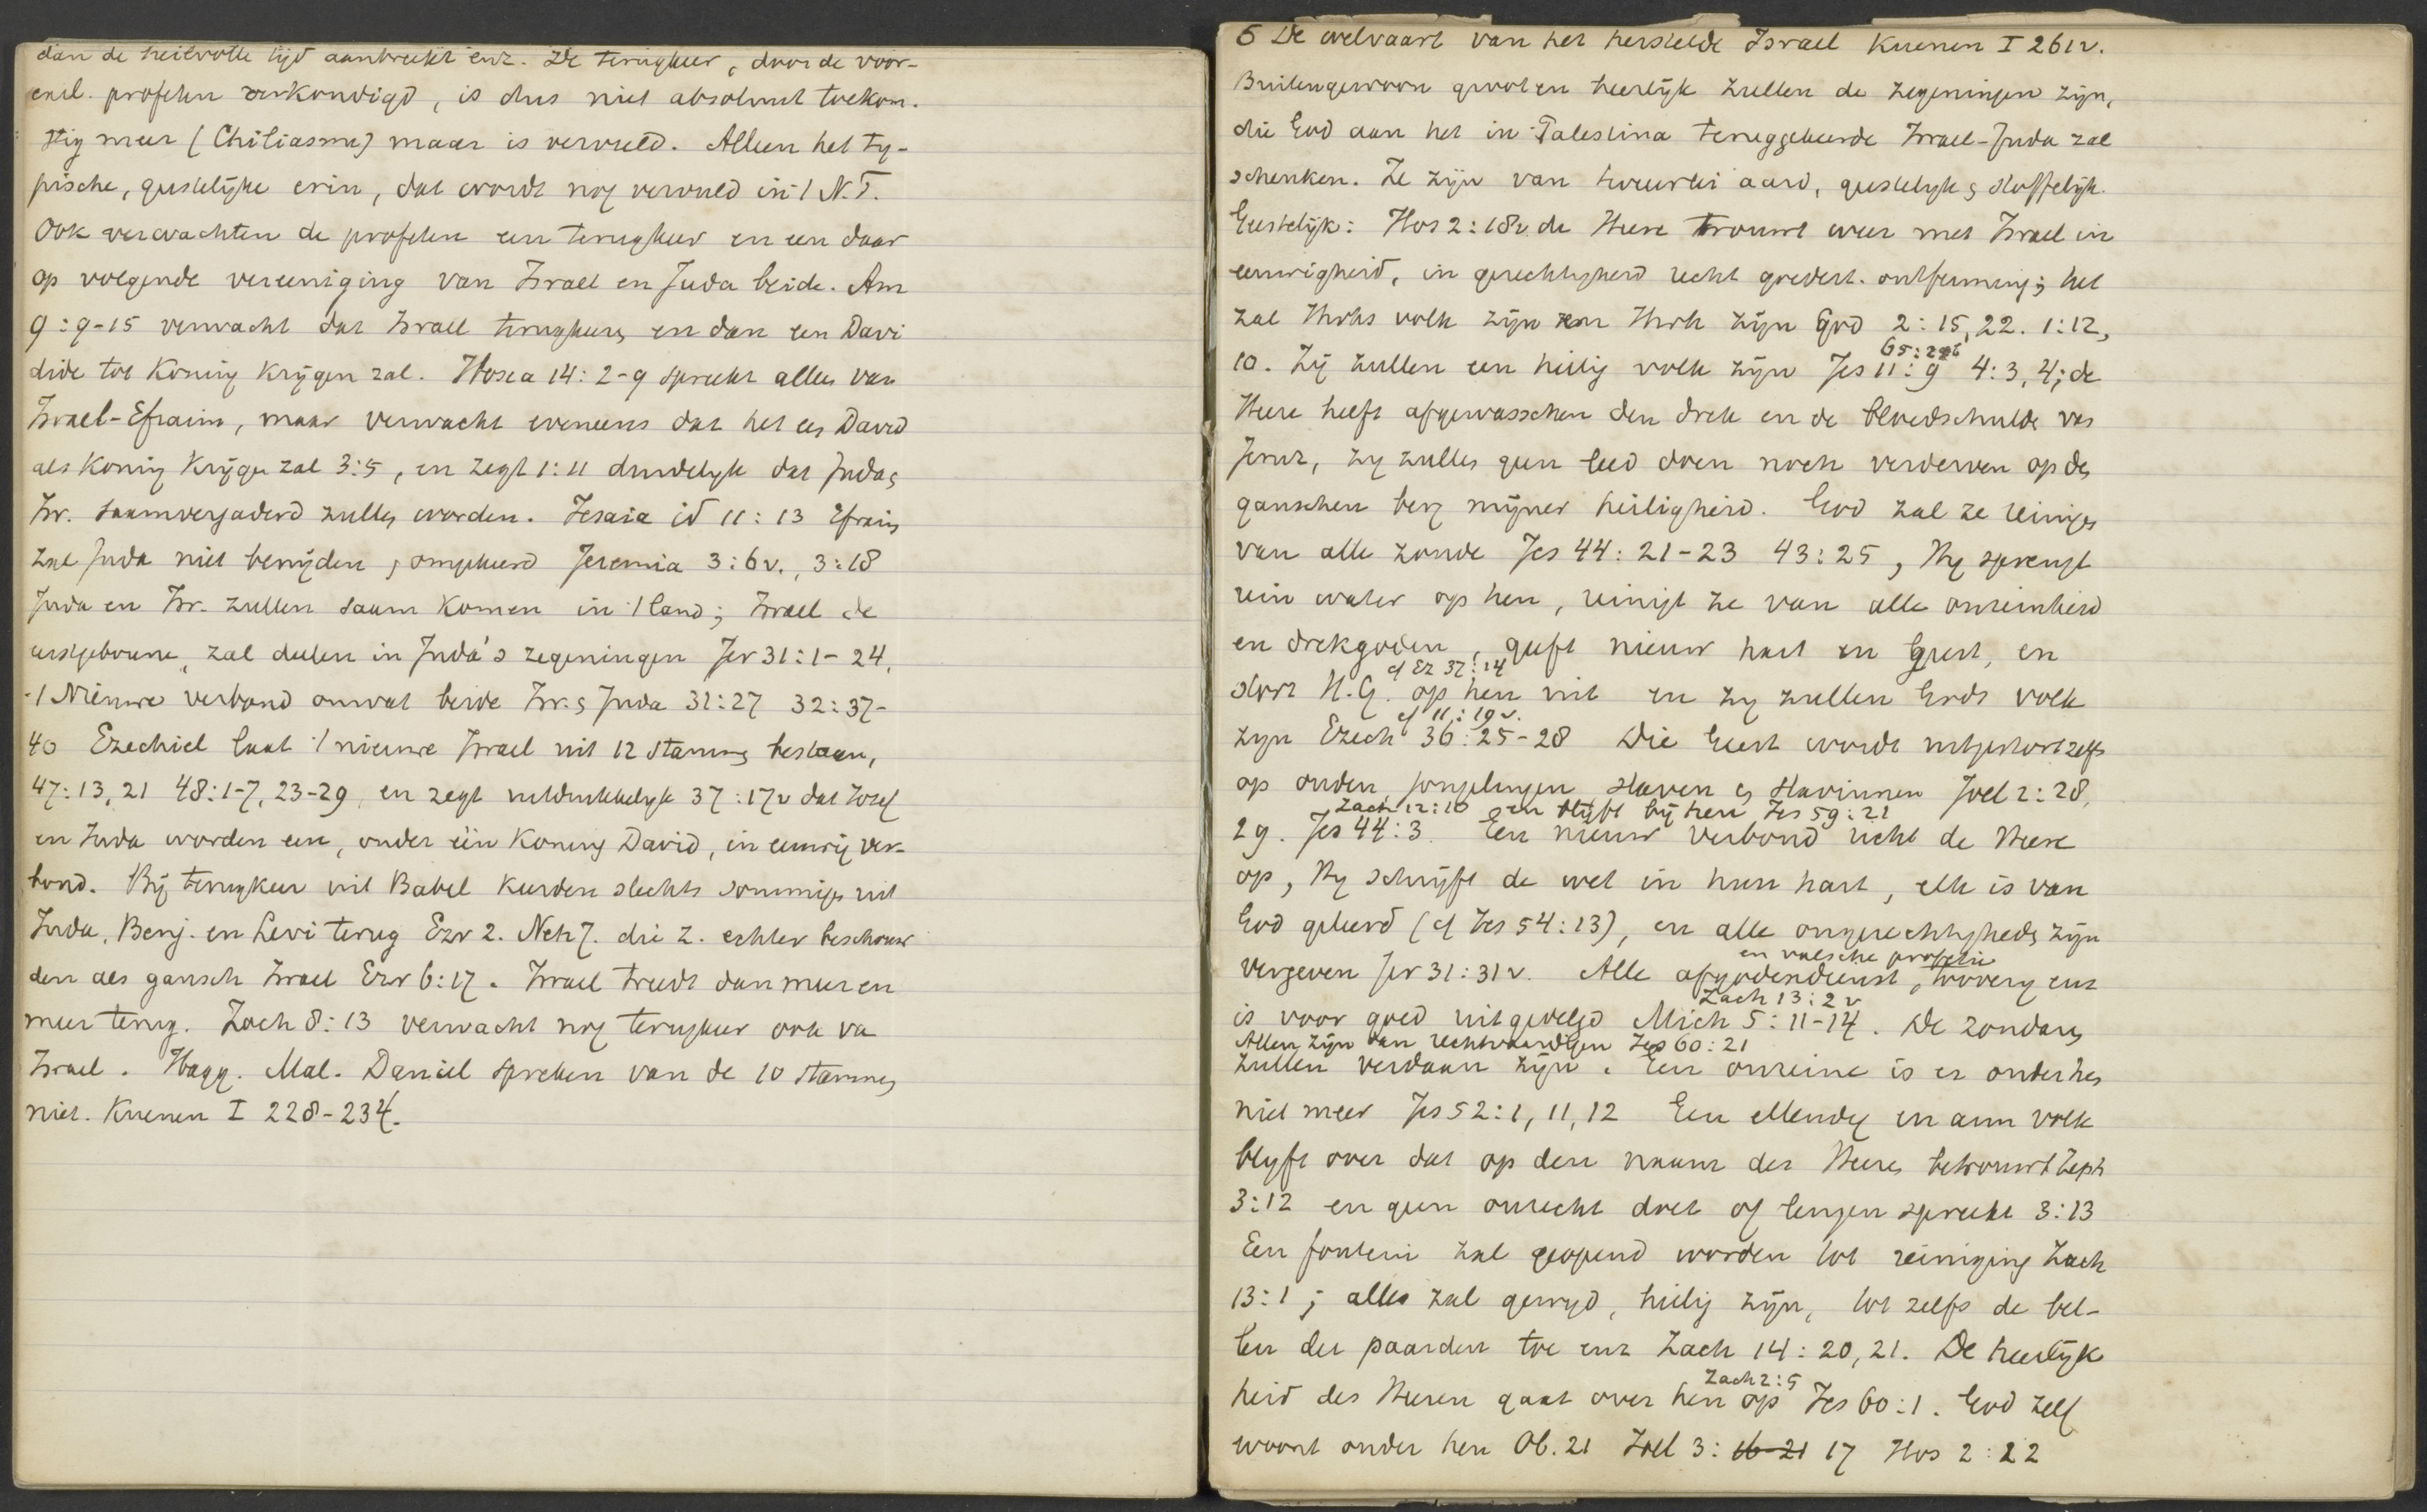 dan de heilvolle tijd aanbreekt enz. De terugkeer, door de voor-
exil. profeten verkondigd, is dus niet absoluut toekom-
stig meer (Chiliasme) maar is vervuld. Alleen het ty-
pische, geestelijke erin, dat wordt nog vervuld in 't N.T.
Ook verwachten de profeten een terugkeer en een daar
op volgende vereeniging van Israel en Juda beide. Am
9:9-15 verwacht dat Israel terugkeert en dan een Davi
dide tot Koning krijgen zal. Hosea 14:2-9 spreekt alleen van
Israel-Efraim, maar verwacht eveneens dat het een David
als Koning krijgen zal 3:5, en zegt 1:11 duidelijk dat Juda en
Isr. saamvergaderd zullen worden. Jesaia id 11:13 Efraim
zal Juda niet benijden, omgekeerd Jeremia 3:6v., 3:18
Juda en Isr. zullen saam komen in 't land; Israel de
eerstgeborene, zal deelen in Juda's zegeningen Jer 31:1-24,
't Nieuwe verbond omvat beide Isr. en Juda 31:27 32:37-
40 Ezechiel laat 't nieuwe Israel uit 12 stammen bestaan,
47:13,21 48:1-7,23-29, en zegt uitdrukkelijk 37:17v dat Jozef
en Juda worden een, onder één Koning David, in eeuwig ver-
bond. Bij terugkeer uit Babel keerden slechts sommigen uit
Juda, Benj. en Levi terug Ezr 2. Neh 7. die z. echter beschouw
den als gansch Israel Ezr 6:17. Israel treedt dan meer en
meer terug. Zach 8:13 verwacht nog terugkeer ook va
Israel. Hagg. Mal. Daniel spreken van de 10 stammen
niet. Kuenen I 228-234.
6 De welvaart van het herstelde Israel Kuenen I 261v.
Buitengewoon groot en heerlijk zullen de zegeningen zijn,
die God aan het in Palestina teruggekeerde Israel-Juda zal
schenken. Ze zijn van tweeërlei aard, geestelijk en stoffelijk.
Geestelijk: Hos 2:18v. de Heere trouwt weer met Israel in
eeuwigheid, in gerechtigheid recht goedert. ontferming; het
zal Jhvhs volk zijn en Jhvh zijn God 2:15,22. 1:12,
65:25
10. Zij zullen een heilig volk zijn Jes 11:9 4:3,4; de
Heere heeft afgewasschen den drek en de bloedschulde van
Jeruz, zij zullen geen leed doen noch verderven op den
ganschen berg mijner heiligheid. God zal ze reinigen
van alle zonde Jes 44:21-23 43:25, Hij sprengt
rein water op hen, reinigt ze van alle onreinheid
en drekgoden, geeft nieuw hart en geest, en
cf Ez 37:14
stort H.G. op hen uit en zij zullen Gods volk
cf 11:19v.
zijn Ezech 36:25-28 Die Geest wordt uitgestort zelfs
op ouden, jongelingen slaven en slavinnen Joel 2:28,
Zach 12:10 en blijft bij hen Jes 59:21
29. Jes 44:3. Een nieuw verbond richt de Heere
op, Hij schrijft de wet in hun hart, elk is van
God geleerd (cf Jes 54:13), en alle ongerechtigheden zijn
en valsche profetie
vergeven Jer 31:31v. Alle afgodendienst, toovery enz
Zach 13:2v
is voor goed uitgedelgd Mich 5:11-14. De zondaren
Allen zijn dan rechtvaardigen Jes 60:21
zullen verdaan zijn. Een onreine is er onder hen
niet meer Jes 52:1,11,12 Een ellendig en arm volk
blijft over dat op den naam des Heeren betrouwt Zeph
3:12 en geen onrecht doet of leugen spreekt 3:13
Een fontein zal geopend worden tot reiniging Zach
13:1; alles zal gewijd, heilig zijn, tot zelfs de bel-
len der paarden toe enz Zach 14:20,21. De heerlijk
Zach 2:5
heid des Heeren gaat over hen op Jes 60:1. God zelf
woont onder hen Ob. 21 Joel 3: 16-21 17 Hos 2:22